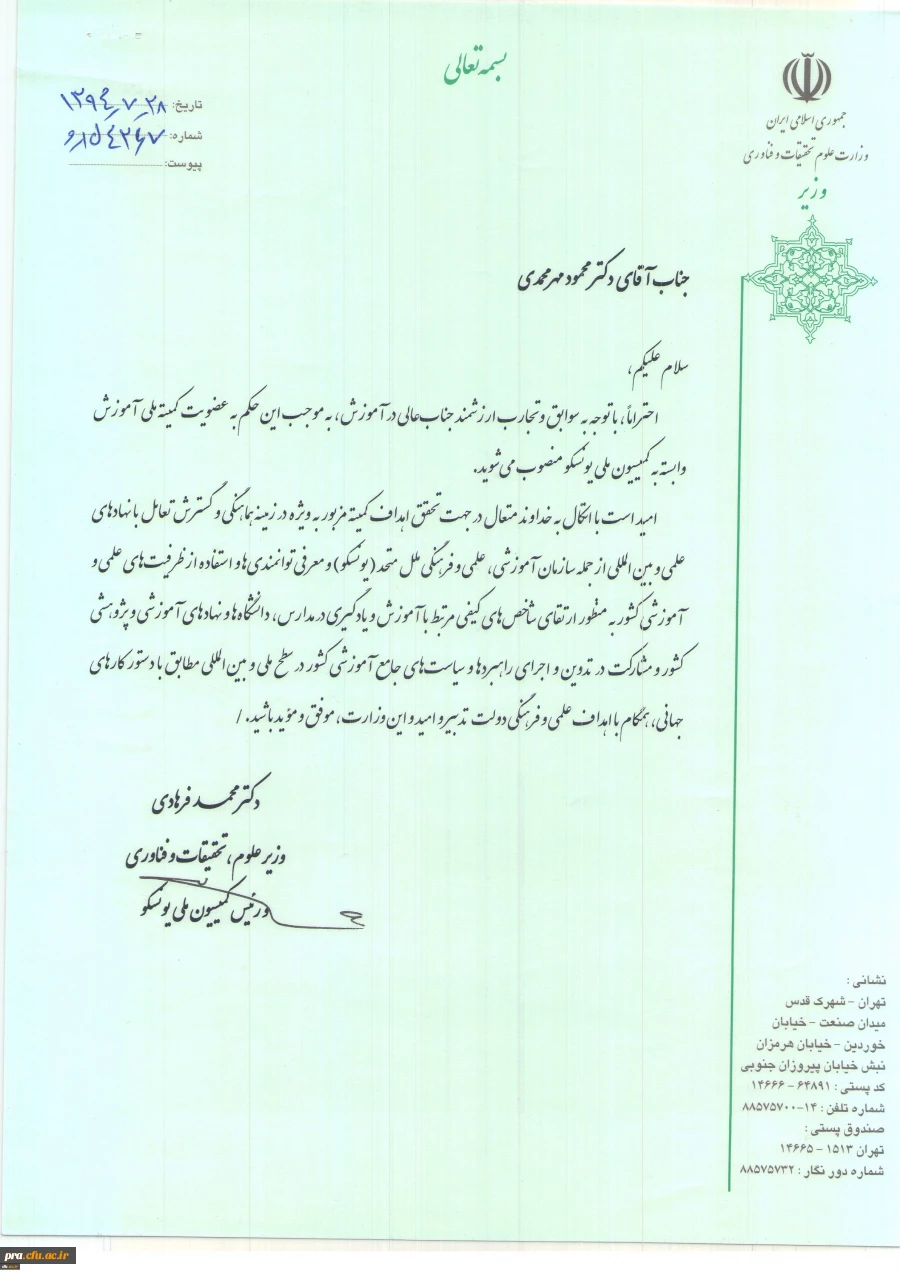 بسمه تعالی
جمهوری اسلامی ایران
وزارت علوم تحقیقات و فناوری
وزیر
تاریخ: ۱۳۹۴٫۷٫۲۸
شماره:
پیوست:
جناب آقای دکتر محمود مهرمحمدی
سلام علیکم،
احتراماً، با توجه به سوابق و تجارب ارزشمند جناب عالی در آموزش، به موجب این حکم به عضویت کمیته ملی آموزش
وابسته به کمیسیون ملی یونسکو منصوب می شوید.
امید است با اتکال به خداوند متعال در جهت تحقق اهداف کمیته مزبور به ویژه در زمینه هماهنگی و گسترش تعامل با نهادهای
علمی و بین المللی از جمله سازمان آموزشی، علمی و فرهنگی ملل متحد (یونسکو) و معرفی توانمندی ها و استفاده از ظرفیت های علمی و
آموزشی کشور به منظور ارتقای شاخص های کیفی مرتبط با آموزش و یادگیری در مدارس، دانشگاه ها و نهادهای آموزشی و پژوهشی
کشور و مشارکت در تدوین و اجرای راهبردها و سیاست های جامع آموزشی کشور در سطح ملی و بین المللی مطابق با دستور کارهای
جهانی، همگام با اهداف علمی و فرهنگی دولت تدبیر و امید و این وزارت، موفق و مؤید باشید. /
دکتر محمد فرهادی
وزیر علوم، تحقیقات و فناوری
و رئیس کمیسیون ملی یونسکو
نشانی :
تهران - شهرک قدس
میدان صنعت - خیابان
خوردین - خیابان هرمزان
نبش خیابان پیروزان جنوبی
کد پستی : ۶۴۸۹۱ - ۱۴۶۶۶
شماره تلفن : ۱۴-۸۸۵۷۵۷۰۰
صندوق پستی :
تهران ۱۵۱۳ - ۱۴۶۶۵
شماره دور نگار : ۸۸۵۷۵۷۳۲
pra.cfu.ac.ir